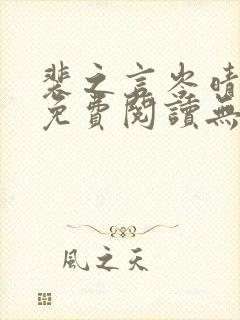 裴之言岑晴
免費閱讀無
風之天